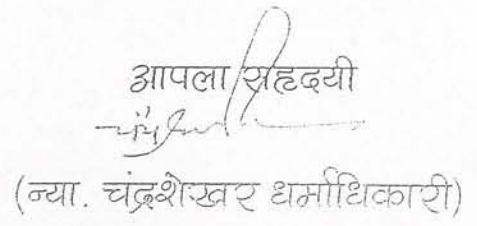 आपला सहृदयी
(न्या. चंद्रशेखर धर्माधिकारी)